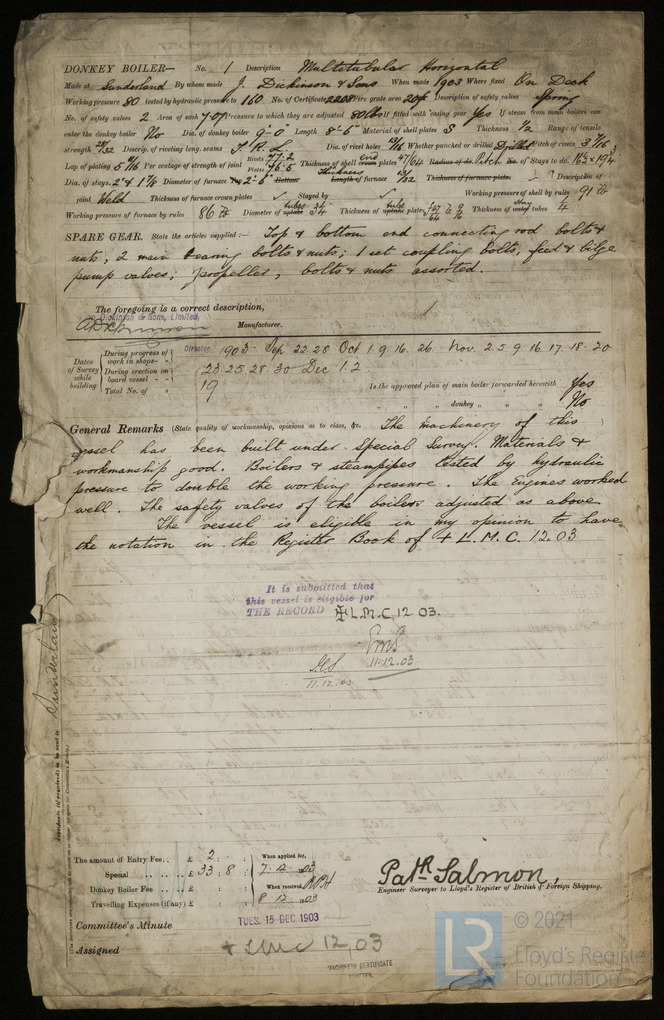 DONKEY BOILER— No. 1 Description Multitubular Horizontal
Made at Sunderland By whom made J. Dickinson & Sons When made 1903 Where fixed On Deck
Working pressure 80 tested by hydraulic pressure to 160 No. of Certificate 2203 Fire grate area Description of safety valves Spring
No. of safety valves 2 Area of each 7.07 Pressure to which they are adjusted 80 lbs If fitted with easing gear Yes If steam from main boilers can
enter the donkey boiler No Dia. of donkey boiler 9'-0" Length 8'-6" Material of shell plates S Thickness 1/2 Range of tensile
strength 28/32 Descrip. of riveting long. seams T.R.L. Dia. of rivet holes 13/16 Whether punched or drilled Drilled Pitch of rivets 3 7/16
Lap of plating 5 11/16 Per centage of strength of joint Rivets 77.2 Plates 76.5 Thickness of shell crown plates End 47/64 Radius of do. Pitch No. of Stays to do.
Dia. of stays. Diameter of furnace Top 2'-6" Bottom Thickness Length of furnace 13/32 Thickness of furnace plates Description of
joint Weld Thickness of furnace crown plates ✓ Stayed by ✓ Working pressure of shell by rules 91 lb
Working pressure of furnace by rules 86 lb Diameter of uptake tubes 3 1/4 Thickness of uptake plates tube Thickness of water tubes stay 1/4
SPARE GEAR. State the articles supplied:— Top & bottom end connecting rod bolts &
nuts, 2 main bearing bolts & nuts; 1 set coupling bolts, feed & bilge
pump valves; propeller, bolts & nuts assorted.
The foregoing is a correct description,
Dickinson & Sons, Limited,
Manufacturer.
Director
Dates of Survey while building
During progress of work in shops - - 1903 - Sep 22. 28 Oct 1. 9. 16. 26 Nov. 2. 5. 9. 16. 17. 18. 20
During erection on board vessel - - - 23. 25. 28. 30 Dec 1. 2
Total No. of 19
Is the approved plan of main boiler forwarded herewith Yes
" " " donkey " " " No
General Remarks (State quality of workmanship, opinions as to class, &c. The Machinery of this
vessel has been built under Special Survey. Materials &
workmanship good. Boilers & steampipes tested by hydraulic
pressure to double the working pressure. The Engines worked
well. The safety valves of the boilers adjusted as above.
The vessel is eligible in my opinion to have
the notation in the Register Book of + L.M.C. 12.03
It is submitted that
this vessel is eligible for
THE RECORD + L.M.C. 12.03.
11.12.03
11.12.03
Sunderland
The amount of Entry Fee.. £ 2 : :
Special .. .. £ 33 : 8 :
Donkey Boiler Fee .. .. £ : :
Travelling Expenses (if any) £ : :
When applied for,
7.12.03
When received,
8.12.03
Path Salmon,
Engineer Surveyor to Lloyd's Register of British & Foreign Shipping.
Committee's Minute TUES. 15 DEC 1903
Assigned + LMC 12.03
MACHINERY CERTIFICATE
WRITTEN
LR
© 2021
Lloyd's Register
Foundation